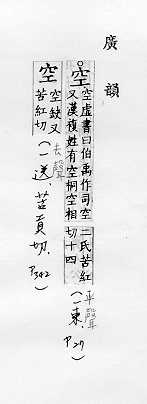 廣韻
空
空虛書曰伯禹作司空
又漢複姓有空桐空相
二氏苦紅
切十四
平聲
(一東、P27)
空
空缺又
苦紅切
去聲
(一送、苦貢切、P342)